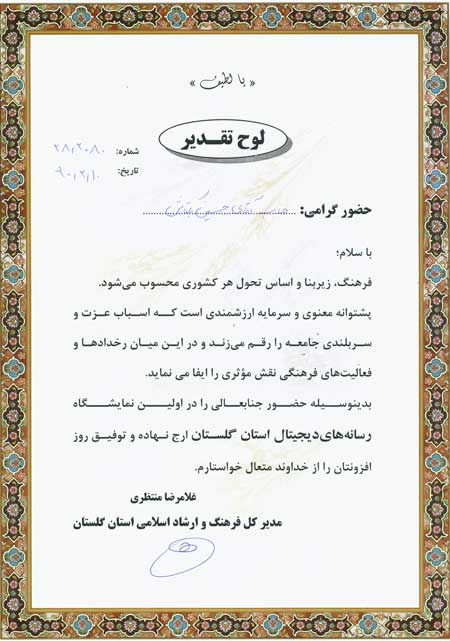 « یا لطیف »
لوح تقدیر
شماره: ۲۸,۲۰۸۰
تاریخ: ۹۰,۲,۱۰
حضور گرامی:
با سلام؛
فرهنگ، زیربنا و اساس تحول هر کشوری محسوب می‌شود.
پشتوانه معنوی و سرمایه ارزشمندی است که اسباب عزت و
سربلندی جامعه را رقم می‌زند و در این میان رخدادها و
فعالیت‌های فرهنگی نقش مؤثری را ایفا می نماید.
بدینوسیله حضور جنابعالی را در اولین نمایشگاه
رسانه‌های دیجیتال استان گلستان ارج نهاده و توفیق روز
افزونتان را از خداوند متعال خواستارم.
غلامرضا منتظری
مدیر کل فرهنگ و ارشاد اسلامی استان گلستان